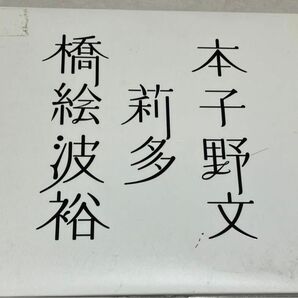 本子野文
莉多
橋絵波裕